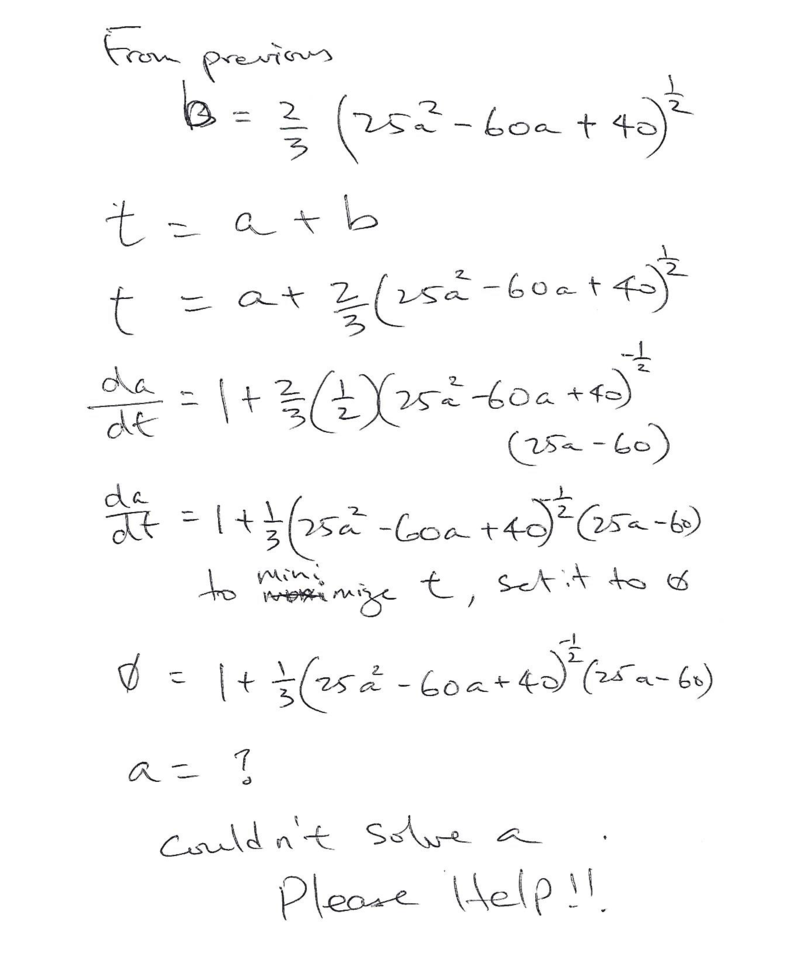 From previous
b = 2/3 (25a² - 60a + 40)^1/2
t = a + b
t = a + 2/3 (25a² - 60a + 40)^1/2
da/dt = 1 + 2/3 (1/2)(25a² - 60a + 40)^-1/2
(25a - 60)
da/dt = 1 + 1/3 (25a² - 60a + 40)^-1/2 (25a - 60)
to minimize t, set it to 0
0 = 1 + 1/3 (25a² - 60a + 40)^-1/2 (25a - 60)
a = ?
Couldn't solve a .
Please Help!!.